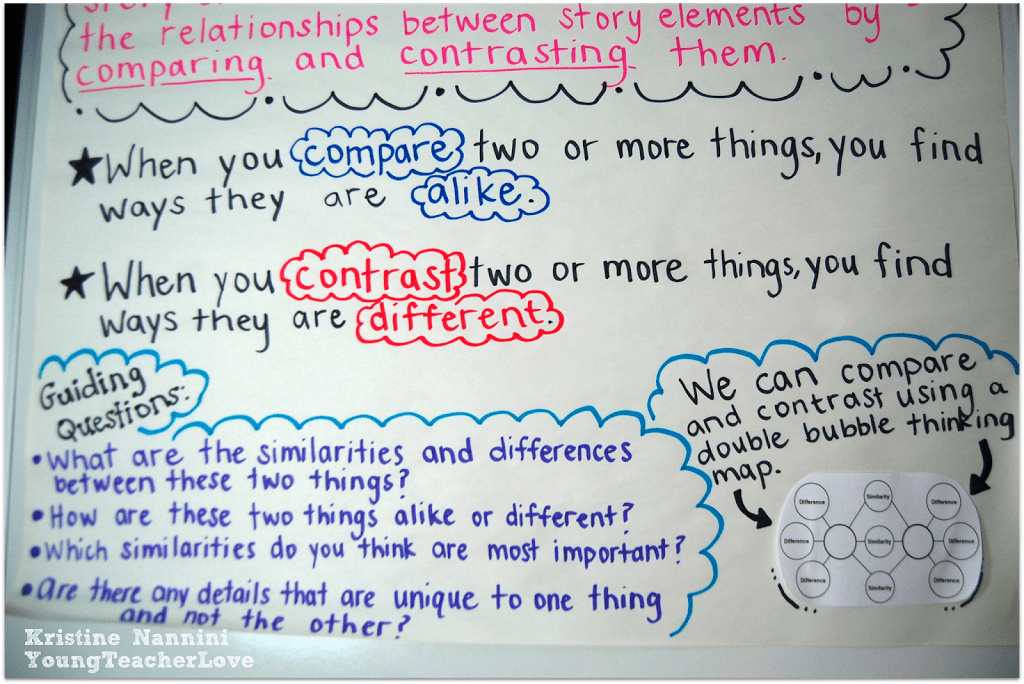 the relationships between story elements by
comparing and contrasting them.
★When you compare two or more things, you find
ways they are alike.
★When you contrast, two or more things, you find
ways they are different.
Guiding
Questions:
•What are the similarities and differences
between these two things?
•How are these two things alike or different?
•Which similarities do you think are most important?
•Are there any details that are unique to one thing
and not the other?
We can compare
and contrast using a
double bubble thinking
map.
Difference Similarity Difference
Difference Similarity Difference
Difference Similarity Difference
Kristine Nannini
YoungTeacherLove